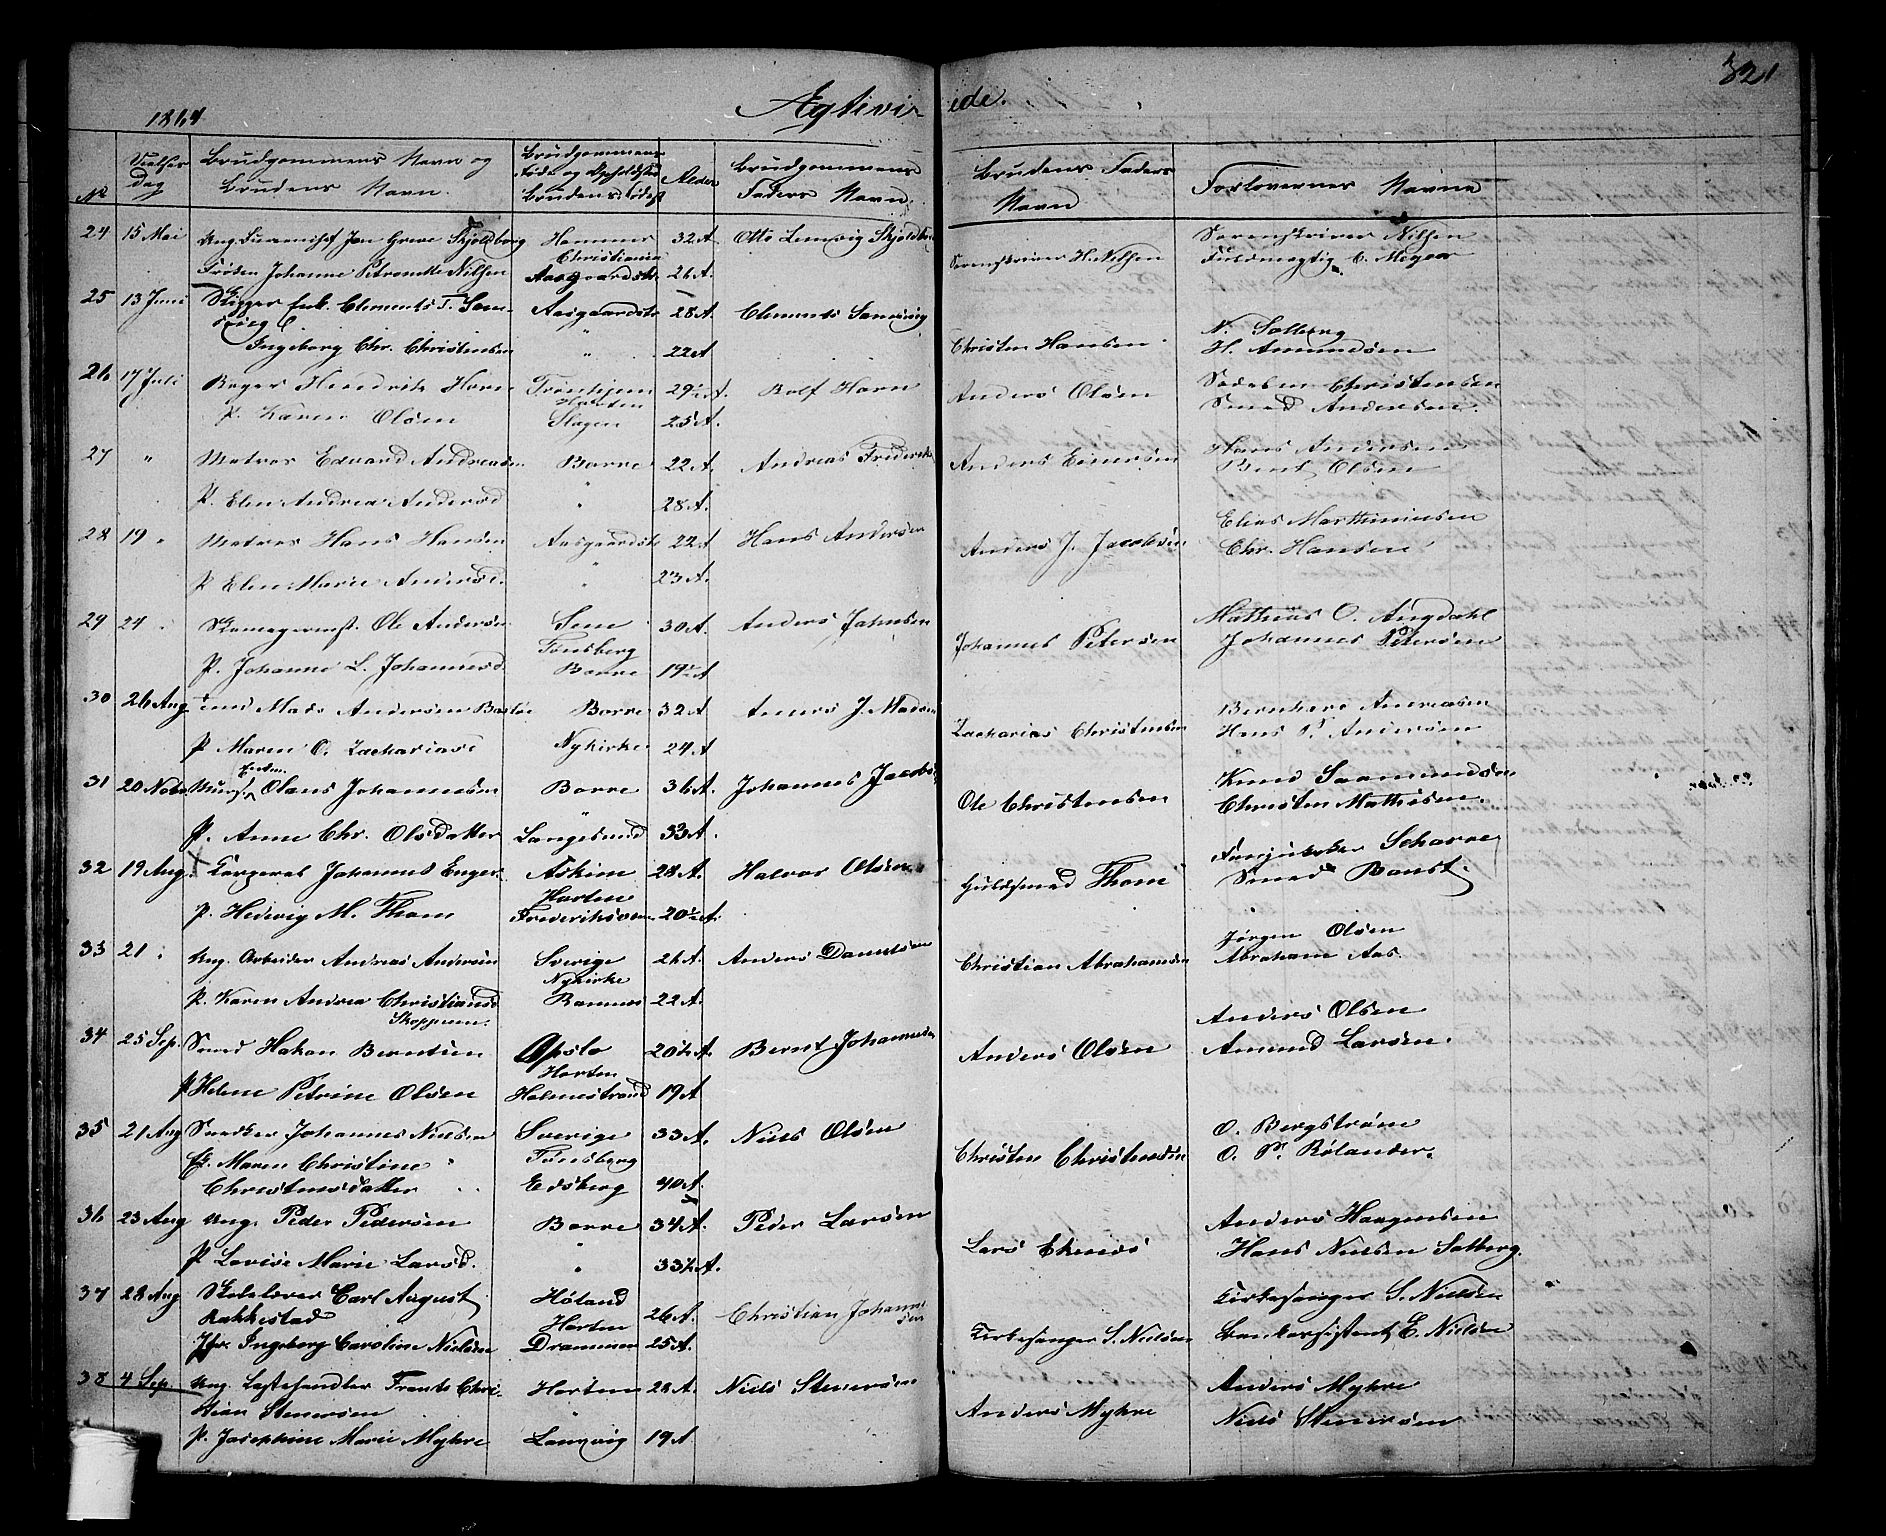 321
1864 Ægtevi ede.
No Vielses Dag Brudgommens Navn og Brudens Navn. Brudgommens Føde og Opholdsted Brudens Fødest Alder Brudgommens Faders Navn. Brudens Faders Navn Forlovernes Navne
24 15 Mai Ung. Jon Greve Skjoldborg Hammer Christiania 32 A. Otto Lemvig Skjoldbor Sorenskriver Nilsen
Frøken Johanne Petronelle Nilsen Aasgaardstr 26 A. Sorenskriver H. Nilsen Fuldmægtig C. Meyer
25 13 Juni Skipper Enk. Clements T. Aasgaardstr 28 A. Clements N. Solberg
Ingeborg Chr. Christensen " 22 A Christen Hansen H. Amundsen
26 17 Juli Bager Hendrik Horn Trondhjem Horten 29½ A. Rolf Horn Christensen
P. Karen Olsen Slagen 25 A. Anders Olsen Smed Andersen.
27 " Matros Edvard Andreasen Borre 22 A. Andreas Frederiks Hans Andersen
P. Elen Andrea Andersd " 28 A. Anders Einersen Bent Olsen
28 19 " Matros Hans Hansen Aasgaardstr 22 A Hans Andersen Elias Marthiniusen
P. Elen Marie Andersd. " 23 A. Anders J. Jacobsen Chr. Hansen
29 24 " Skomagermst. Ole Andersen Sem Tønsberg 30 A. Anders Johnsen Mathias O. Angdahl
P. Johanne L. Johannesd Borre 19½ A Johannes Petersen Johannes Petersen
30 26 Aug Mads Andersen Bastøe Borre 32 A Anders J. Madsen Bernhard Andreasen
P. Maren O. Zachariasd Nykirke 24 A Zacharias Christensen Hans P. Andersen
31 20 Novbr Murs. Enkm. Olaus Johannesen Borre 36 A. Johannes Jacobs Knud Saamundsen
P. Anne Chr. Olsdatter Langesund 33 A. Ole Christensen Christen Mathisen.
32 19 Aug Korperal Johannes Enger Askim Horten 28 A. Halvor Olsen Scharre
P. Hedevig M. Thom Frederiksværn 20½ A. Guldsmed Thom Smed Bonst.
33 21 " Ung. Arbeider Andreas Andersen Sverige Nykirke 26 A. Anders Danielsen Jørgen Olsen
P. Karen Andrea Christiansd Skoppum. Ramnes 22 A. Christian Abrahamsen Abraham Aas.
34 25 Sep. Smed Hakon Berntsen Opslo Horten 20½ A. Bernt Johannesen Anders Olsen
P. Helene Petrine Olsen Holmestrand 19 A Anders Olsen Amund Larsen.
35 21 Aug Snedker Johannes Nielsen Sverige Tønsberg 33 A. Niels Olsen O. Bergstrøm
P. Maren Christine Christensdatter Edsberg 40 A. Christen Christensen O. P. Rølander.
36 23 Aug Ung. Peder Pedersen Borre 34 A. Peder Larsen Anders Haagensen
P. Lovise Marie Larsd. " 33½ A. Lars Hans Nielsen Solberg.
37 28 Aug Skolelærer Carl August Rakkestad Høland Horten 26 A. Christian Johannesen Kirkesanger S. Nielsen
Jfr. Ingeborg Caroline Nielsen Drammen 25 A. Kirkesanger S. Nielsen Bankassistent E. Nielsen
38 4 Sep. Ung. Frants Christian Stenersen Horten 28 A. Niels Stenersen Anders Myhre
P. Josephine Marie Myhre Laurvig 19 A Anders Myhre Niels Stenersen